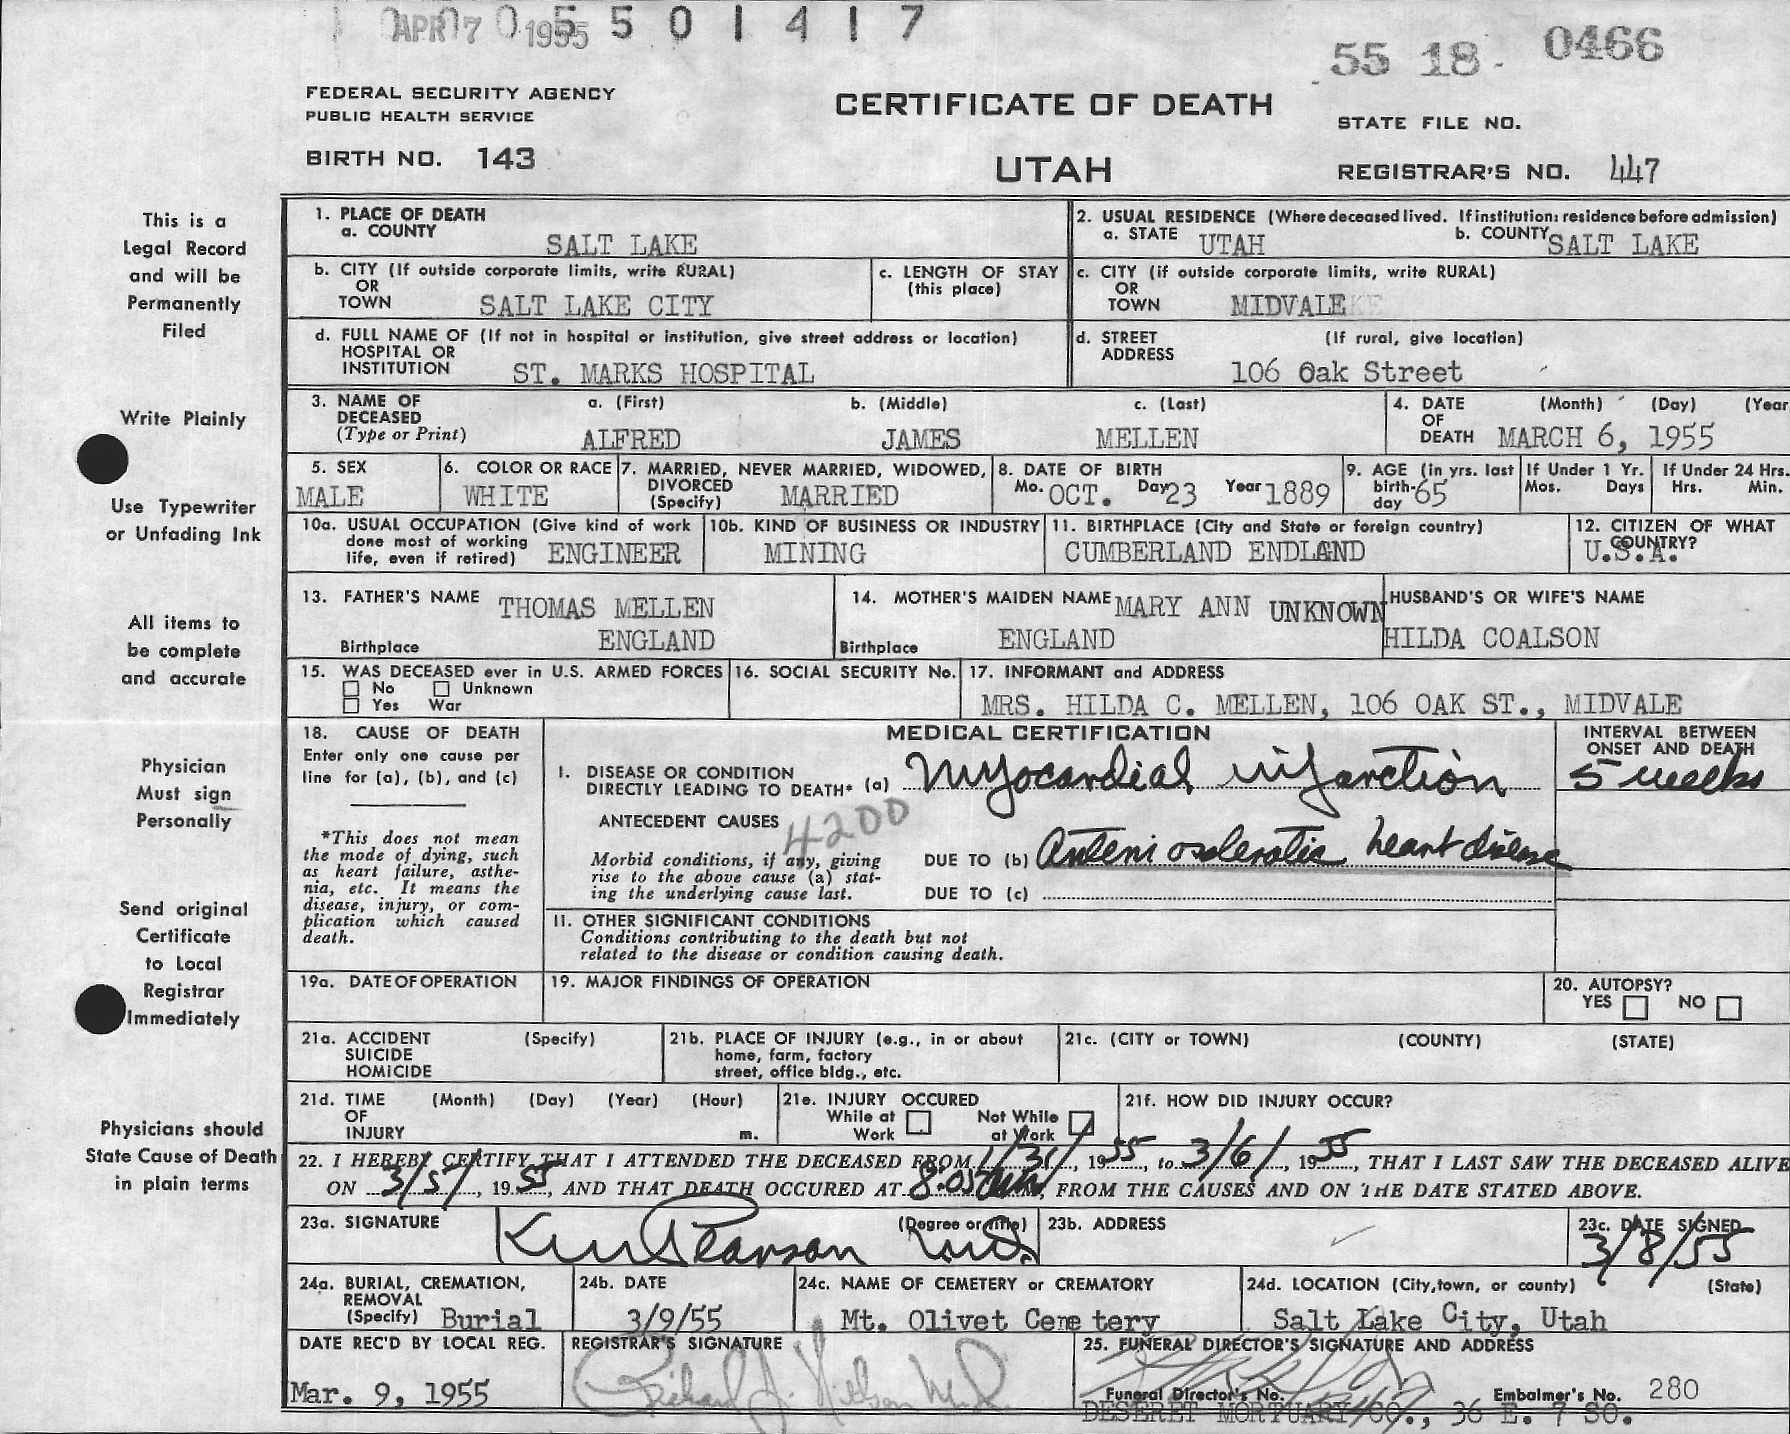 APR 7 1955 5 5 0 1 4 1 7
55 18 - 0466
FEDERAL SECURITY AGENCY
PUBLIC HEALTH SERVICE
CERTIFICATE OF DEATH
STATE FILE NO.
BIRTH NO. 143
UTAH
REGISTRAR'S NO. 447
This is a
Legal Record
and will be
Permanently
Filed
Write Plainly
Use Typewriter
or Unfading Ink
All items to
be complete
and accurate
Physician
Must sign
Personally
Send original
Certificate
to Local
Registrar
Immediately
Physicians should
State Cause of Death
in plain terms
1. PLACE OF DEATH
a. COUNTY
SALT LAKE
2. USUAL RESIDENCE (Where deceased lived. If institution: residence before admission)
a. STATE UTAH b. COUNTY SALT LAKE
b. CITY (If outside corporate limits, write RURAL)
OR
TOWN SALT LAKE CITY
c. LENGTH OF STAY
(this place)
c. CITY (if outside corporate limits, write RURAL)
OR
TOWN MIDVALE
d. FULL NAME OF (If not in hospital or institution, give street address or location)
HOSPITAL OR
INSTITUTION ST. MARKS HOSPITAL
d. STREET (If rural, give location)
ADDRESS
106 Oak Street
3. NAME OF a. (First) b. (Middle) c. (Last)
DECEASED
(Type or Print) ALFRED JAMES MELLEN
4. DATE (Month) (Day) (Year
OF
DEATH MARCH 6, 1955
5. SEX
MALE
6. COLOR OR RACE
WHITE
7. MARRIED, NEVER MARRIED, WIDOWED,
DIVORCED
(Specify) MARRIED
8. DATE OF BIRTH
Mo. OCT. Day 23 Year 1889
9. AGE (in yrs. last
birth-
day 65
If Under 1 Yr.
Mos. Days
If Under 24 Hrs.
Hrs. Min.
10a. USUAL OCCUPATION (Give kind of work
done most of working
life, even if retired) ENGINEER
10b. KIND OF BUSINESS OR INDUSTRY
MINING
11. BIRTHPLACE (City and State or foreign country)
CUMBERLAND ENDLAND
12. CITIZEN OF WHAT
COUNTRY?
U.S.A.
13. FATHER'S NAME THOMAS MELLEN
Birthplace ENGLAND
14. MOTHER'S MAIDEN NAME MARY ANN UNKNOWN
Birthplace ENGLAND
HUSBAND'S OR WIFE'S NAME
HILDA COALSON
15. WAS DECEASED ever in U.S. ARMED FORCES
No Unknown
Yes War
16. SOCIAL SECURITY No.
17. INFORMANT and ADDRESS
MRS. HILDA C. MELLEN, 106 OAK ST., MIDVALE
18. CAUSE OF DEATH
Enter only one cause per
line for (a), (b), and (c)
*This does not mean
the mode of dying, such
as heart failure, asthe-
nia, etc. It means the
disease, injury, or com-
plication which caused
death.
MEDICAL CERTIFICATION
INTERVAL BETWEEN
ONSET AND DEATH
I. DISEASE OR CONDITION
DIRECTLY LEADING TO DEATH* (a) Myocardial infarction
5 weeks
ANTECEDENT CAUSES 4200
Morbid conditions, if any, giving
rise to the above cause (a) stat-
ing the underlying cause last.
DUE TO (b) Arteriosclerotic heart disease
DUE TO (c)
II. OTHER SIGNIFICANT CONDITIONS
Conditions contributing to the death but not
related to the disease or condition causing death.
19a. DATE OF OPERATION
19. MAJOR FINDINGS OF OPERATION
20. AUTOPSY?
YES NO
21a. ACCIDENT (Specify)
SUICIDE
HOMICIDE
21b. PLACE OF INJURY (e.g., in or about
home, farm, factory
street, office bldg., etc.
21c. (CITY or TOWN) (COUNTY) (STATE)
21d. TIME (Month) (Day) (Year) (Hour)
OF
INJURY m.
21e. INJURY OCCURED
While at Not While
Work at Work
21f. HOW DID INJURY OCCUR?
22. I HEREBY CERTIFY THAT I ATTENDED THE DECEASED FROM 1/31/, 1955, to 3/6/, 1955, THAT I LAST SAW THE DECEASED ALIVE
ON 3/5/, 1955, AND THAT DEATH OCCURED AT 8:05 m, FROM THE CAUSES AND ON THE DATE STATED ABOVE.
23a. SIGNATURE (Degree or title)
Pearson M.D.
23b. ADDRESS
23c. DATE SIGNED
3/8/55
24a. BURIAL, CREMATION,
REMOVAL
(Specify) Burial
24b. DATE
3/9/55
24c. NAME OF CEMETERY or CREMATORY
Mt. Olivet Cemetery
24d. LOCATION (City, town, or county) (State)
Salt Lake City, Utah
DATE REC'D BY LOCAL REG.
Mar. 9, 1955
REGISTRAR'S SIGNATURE
Richard J. Nielson M.D.
25. FUNERAL DIRECTOR'S SIGNATURE AND ADDRESS
Funeral Director's No. Embalmer's No. 280
DESERET MORTUARY CO., 36 E. 7 SO.